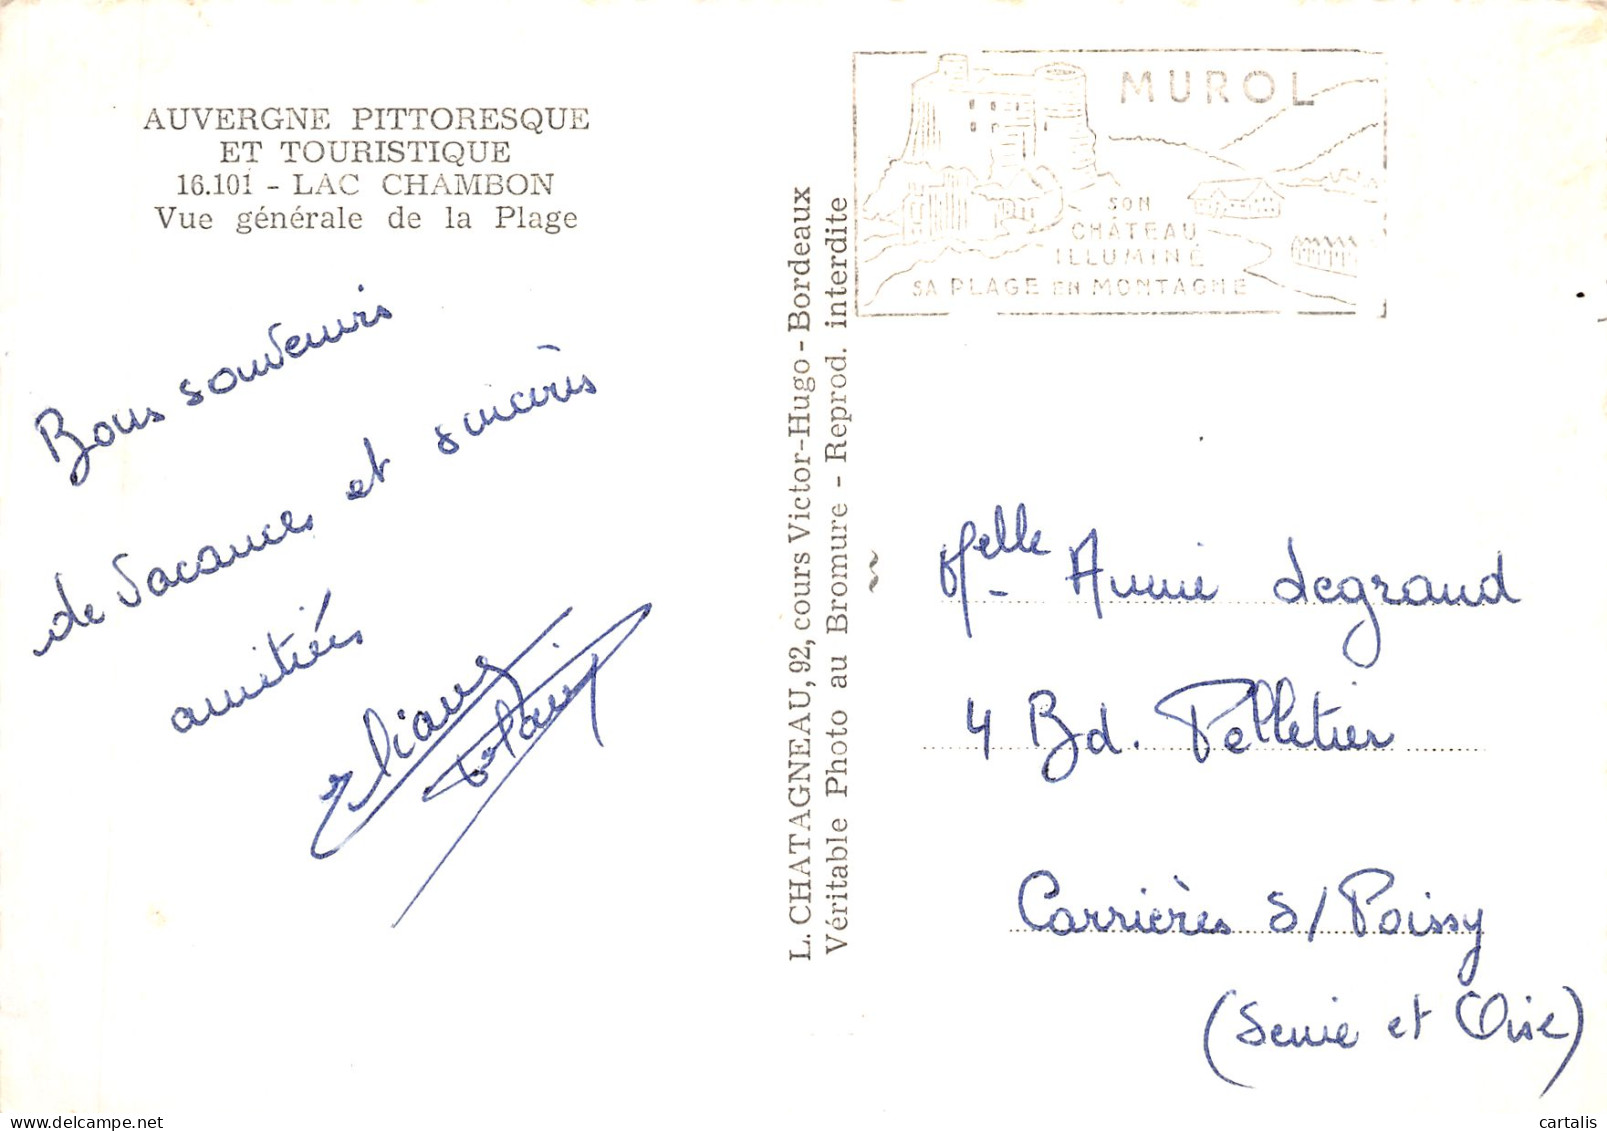 AUVERGNE PITTORESQUE
ET TOURISTIQUE
16.101 - LAC CHAMBON
Vue générale de la Plage
Bons souvenirs
de vacances et sincères
amitiés
Eliane
L. CHATAGNEAU, 92, cours Victor-Hugo - Bordeaux
Véritable Photo au Bromure - Reprod. interdite
MUROL
SON
CHÂTEAU
ILLUMINÉ
SA PLAGE EN MONTAGNE
Melle Annie Legrand
4 Bd. Pelletier
Carrières S/Poissy
(Seine et Oise)
cartalis